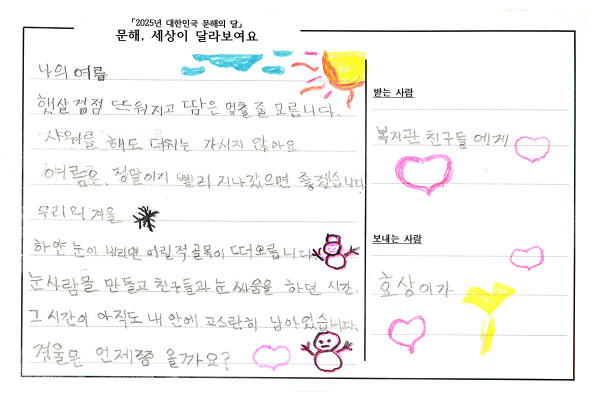 「2025년 대한민국 문해의 달」
문해, 세상이 달라보여요
나의 여름
햇살 점점 뜨워지고 땀은 멈출 줄 모릅니다.
샤워를 해도 더위는 가시지 않아요
여름은, 정말이지 빨리 지나갔으면 좋겠습니다
우리의 겨울
하얀 눈이 내리면 어린적 골목이 떠더오릅니다.
눈사람을 만들고 친구들과 눈 싸움을 하던 시간,
그 시간이 아직도 내 안에 고스란히 남아있습니다.
겨울은 언제쯤 올까요?
받는 사람
복지관 친구들 에게
보내는 사람
효상이가